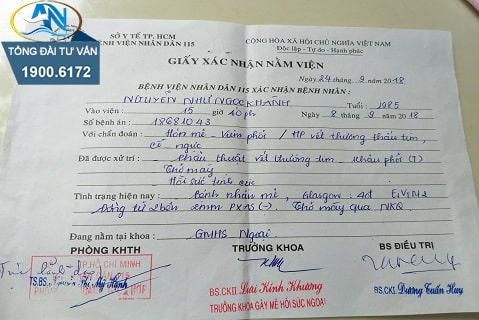 TỔNG ĐÀI TƯ VẤN
1900.6172
SỞ Y TẾ TP. HCM
BỆNH VIỆN NHÂN DÂN 115
CỘNG HÒA XÃ HỘI CHỦ NGHĨA VIỆT NAM
Độc lập - Tự do - Hạnh phúc
GIẤY XÁC NHẬN NẰM VIỆN
Ngày 24 tháng 9 năm 2018
BỆNH VIỆN NHÂN DÂN 115 XÁC NHẬN BỆNH NHÂN:
NGUYỄN NHƯ NGỌC KHANH Tuổi: 1985
Vào viện: 15 giờ 40 ph Ngày 8 9 năm 2018
Số bệnh án: 18681043
Với chẩn đoán: Hôn mê - Viêm phổi / HP vết thương thấu tim,
cổ, ngực
Đã được xử trí: Phẫu thuật vết thương tim - khâu phổi (T)
Thở máy
Hồi sức tích cực
Tình trạng hiện nay: Bệnh nhân mê, Glasgow: 4đ E1V1M2
Đồng tử 2 bên 2mm PXAS (-). Thở máy qua NKQ
Đang nằm tại khoa: GMHS Ngoại
PHÒNG KHTH
TRƯỞNG KHOA
BS ĐIỀU TRỊ
TP.HỒ CHÍ MINH
TS.BS. Nguyễn Thị Mỹ Hạnh
BS.CKII. Lưu Kính Khương
TRƯỞNG KHOA GÂY MÊ HỒI SỨC NGOẠI
BS.CKI. Dương Tuấn Huy